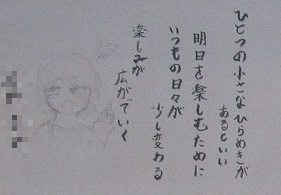 ひとつの小さなひらめきが
あるといい
明日を楽しむために
いつもの日々が
少し変わる
楽しみが
広がていく